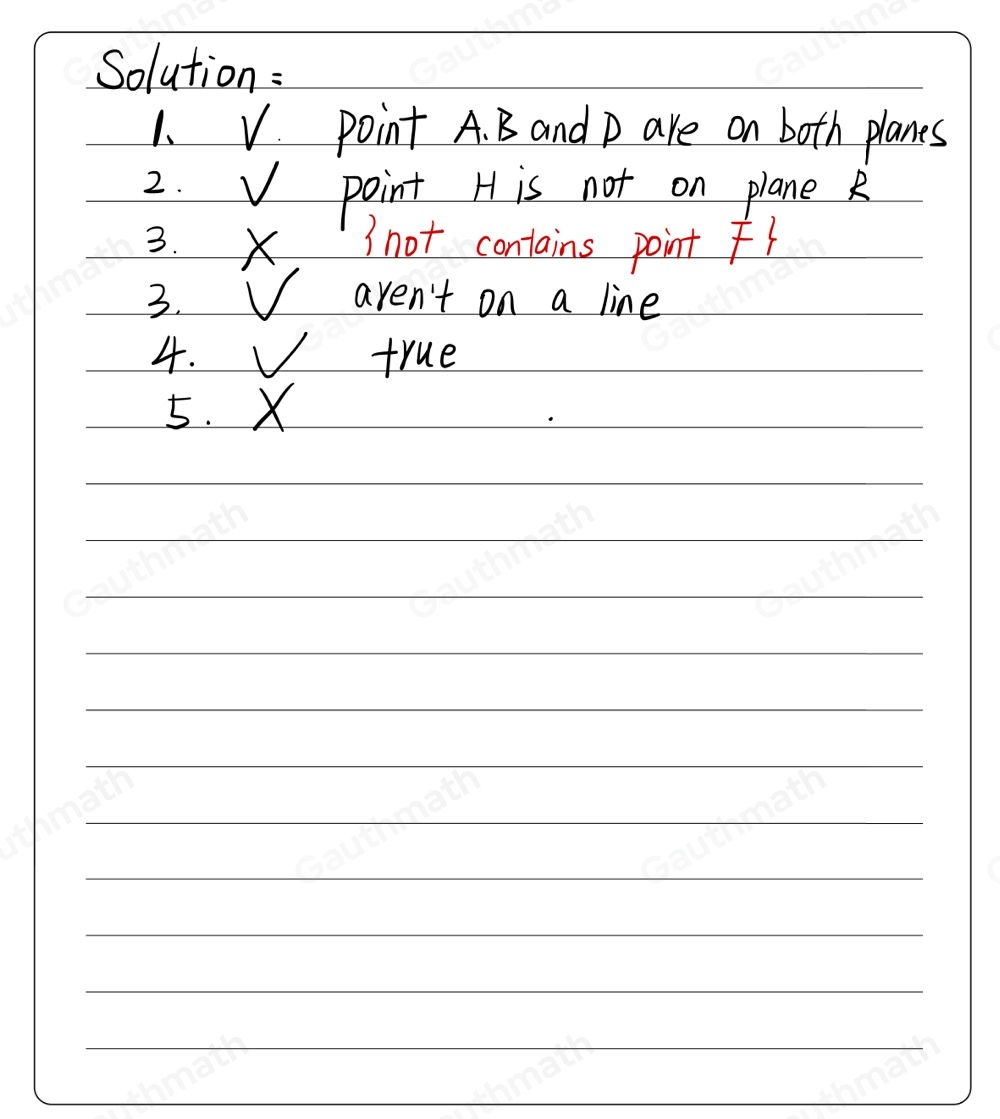 Solution =
1. ✓. point A.B and D are on both planes
2. ✓ point H is not on plane R
3. X {not contains point F}
3. ✓ aren't on a line
4. ✓ true
5. X .
Gauthmath